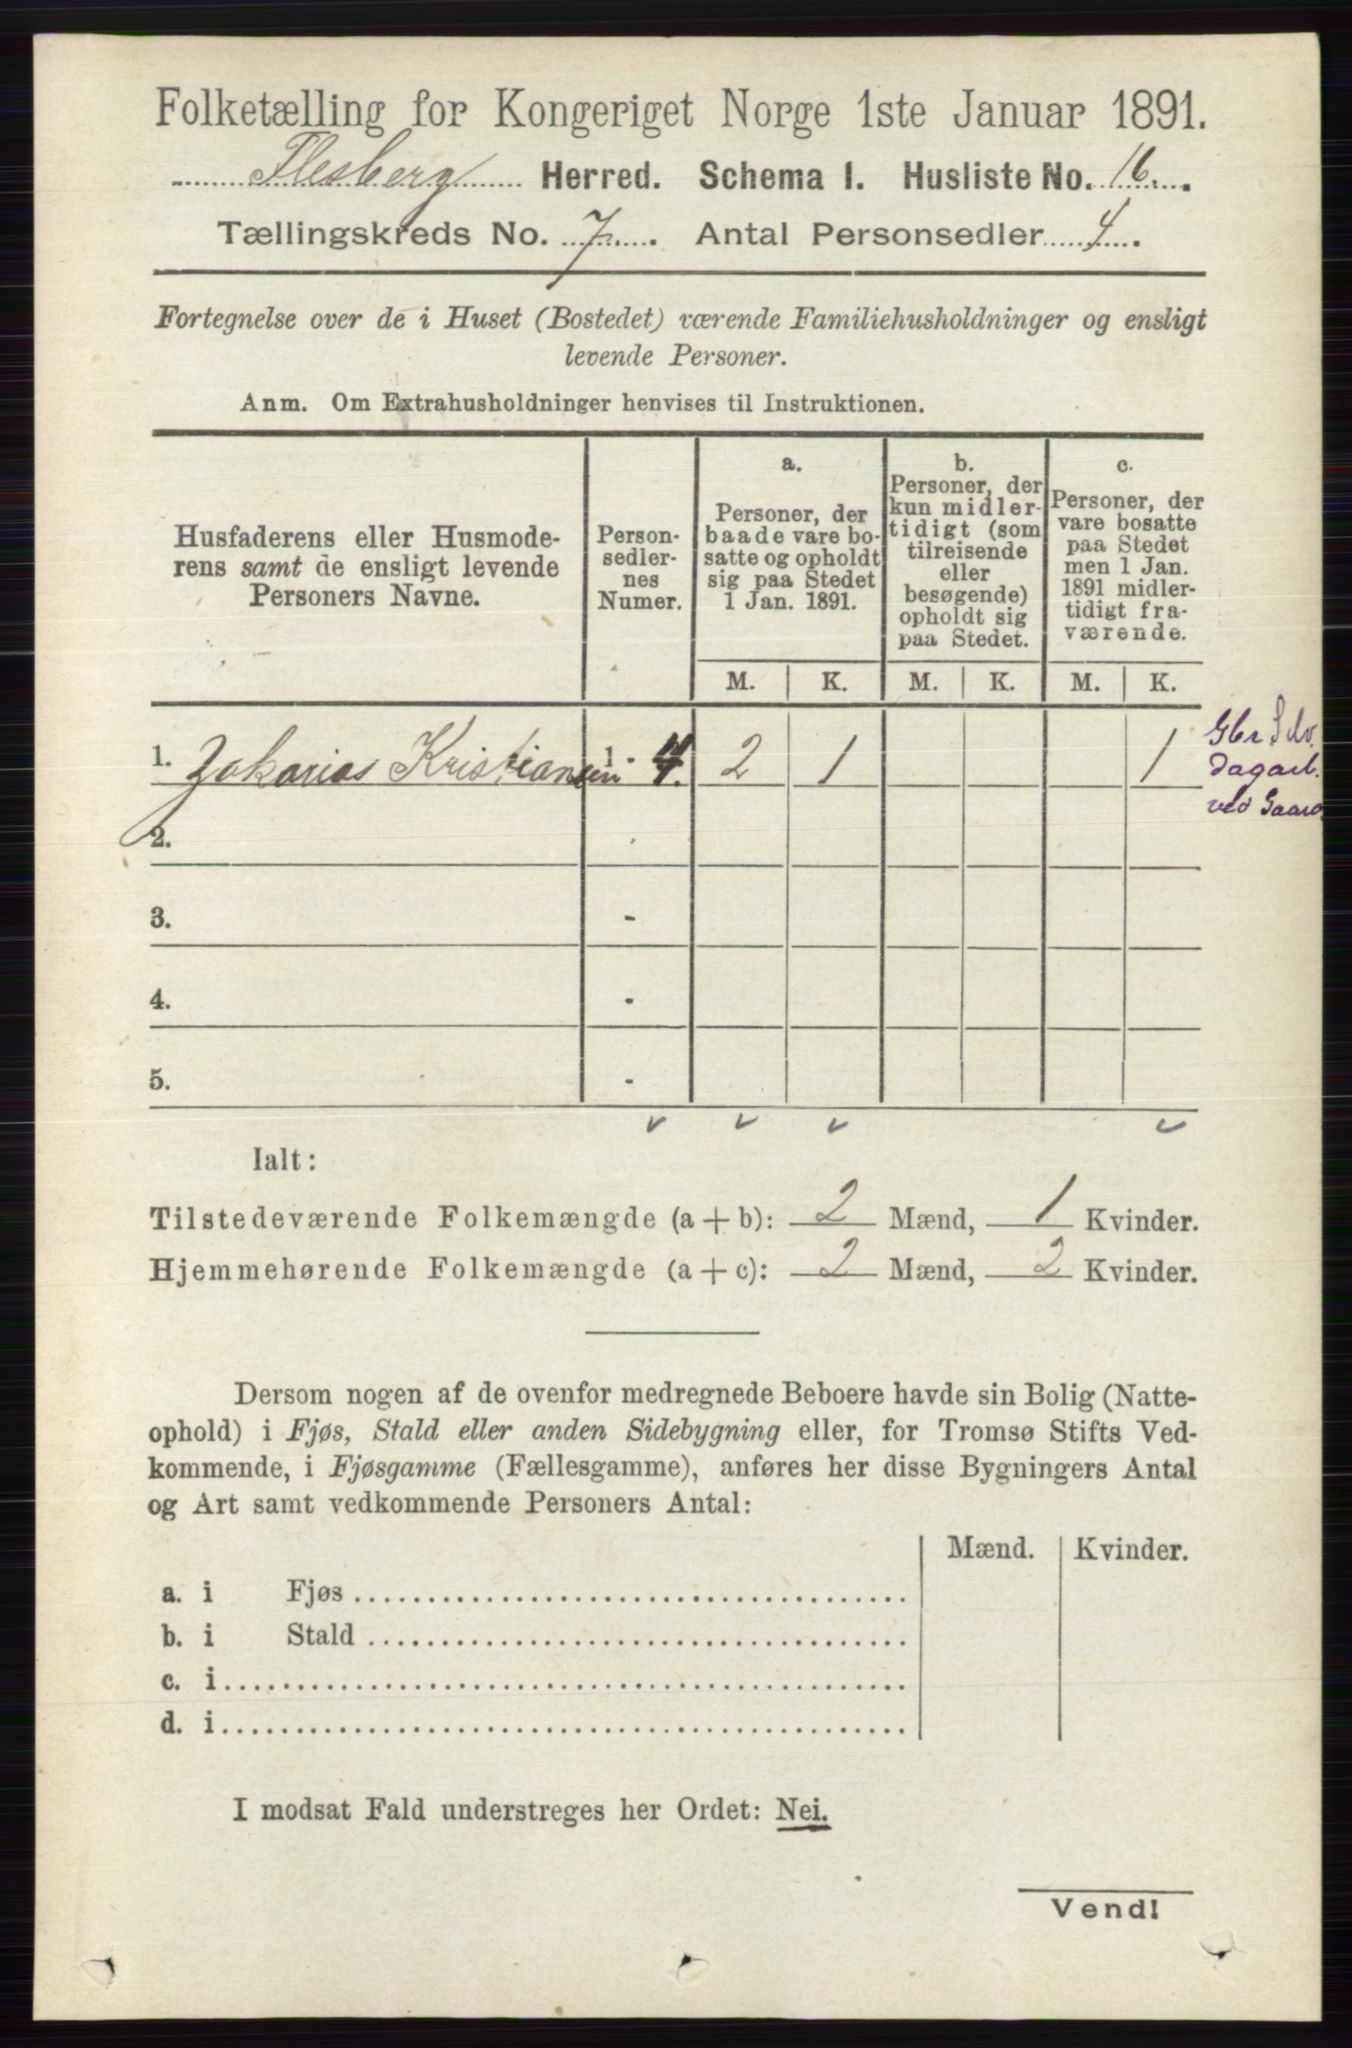 Folketælling for Kongeriget Norge 1ste Januar 1891.
Flesberg Herred. Schema I. Husliste No. 16.
Tællingskreds No. 7. Antal Personsedler 4.
Fortegnelse over de i Huset (Bostedet) værende Familiehusholdninger og ensligt
levende Personer.
Anm. Om Extrahusholdninger henvises til Instruktionen.
Husfaderens eller Husmode-
rens samt de ensligt levende
Personers Navne.
Person-
sedler-
nes
Numer.
a.
Personer, der
baade vare bo-
satte og opholdt
sig paa Stedet
1 Jan. 1891.
b.
Personer, der
kun midler-
tidigt (som
tilreisende
eller
besøgende)
opholdt sig
paa Stedet.
c.
Personer, der
vare bosatte
paa Stedet
men 1 Jan.
1891 midler-
tidigt fra-
værende.
M. K. M. K. M. K.
1. Zakarias Kristiansen 1 - 4. 2 1 1
Gbr Selv.
Dagarb.
ved Gaard
2. -
3. -
4. -
5. -
Ialt:
Tilstedeværende Folkemængde (a + b): 2 Mænd, 1 Kvinder.
Hjemmehørende Folkemængde (a + c): 2 Mænd, 2 Kvinder.
Dersom nogen af de ovenfor medregnede Beboere havde sin Bolig (Natte-
ophold) i Fjøs, Stald eller anden Sidebygning eller, for Tromsø Stifts Ved-
kommende, i Fjøsgamme (Fællesgamme), anføres her disse Bygningers Antal
og Art samt vedkommende Personers Antal:
Mænd. Kvinder.
a. i Fjøs
b. i Stald
c. i
d. i
I modsat Fald understreges her Ordet: Nei.
Vend!